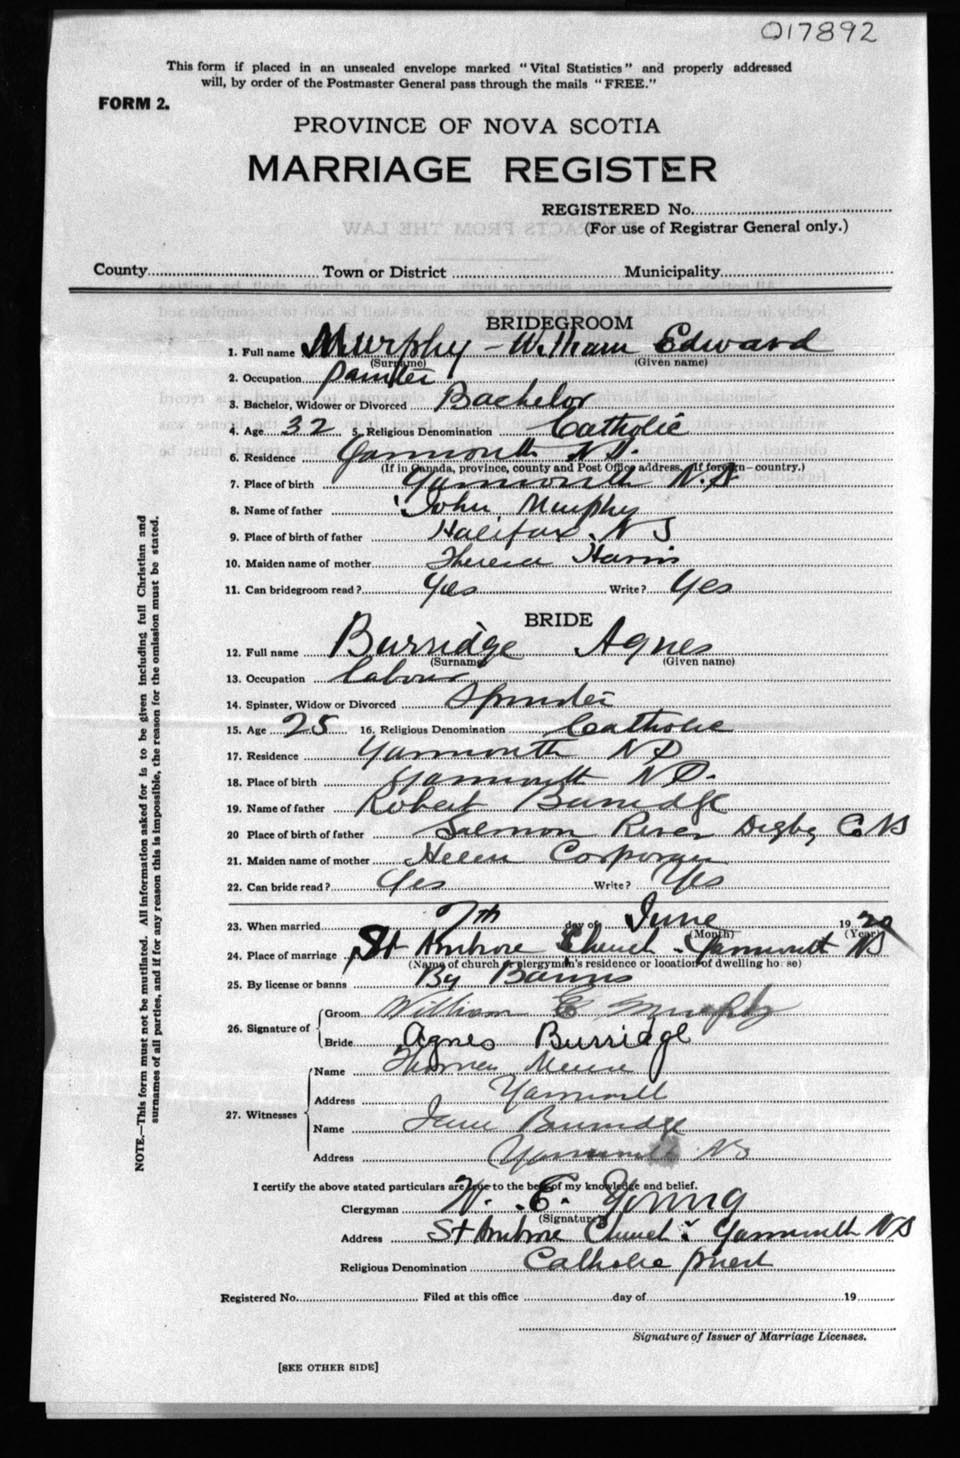 017892
This form if placed in an unsealed envelope marked "Vital Statistics" and properly addressed
will, by order of the Postmaster General pass through the mails "FREE."
FORM 2.
PROVINCE OF NOVA SCOTIA
MARRIAGE REGISTER
REGISTERED No.
(For use of Registrar General only.)
County Town or District Municipality
BRIDEGROOM
1. Full name Murphy - William Edward
(Surname) (Given name)
2. Occupation painter
3. Bachelor, Widower or Divorced Bachelor
4. Age 32 5. Religious Denomination Catholic
6. Residence Yarmouth N.S.
(If in Canada, province, county and Post Office address. If foreign—country.)
7. Place of birth Yarmouth N.S
8. Name of father John Murphy
9. Place of birth of father Halifax N S
10. Maiden name of mother Theresa Harris
11. Can bridegroom read? Yes Write? Yes
BRIDE
12. Full name Burridge Agnes
(Surname) (Given name)
13. Occupation labour
14. Spinster, Widow or Divorced Spinster
15. Age 25 16. Religious Denomination Catholic
17. Residence Yarmouth N S
18. Place of birth Yarmouth N S.
19. Name of father Robert Burridge
20 Place of birth of father Salmon River Digby Co NS
21. Maiden name of mother Helen Corporan
22. Can bride read? Yes Write? Yes
23. When married 7th day of June 1920
(Month) (Year)
24. Place of marriage St Ambrose Church - Yarmouth NS
(Name of church or clergyman's residence or location of dwelling house)
25. By license or banns By Banns
26. Signature of Groom William E Murphy
Bride Agnes Burridge
27. Witnesses Name Thomas Meuse
Address Yarmouth
Name Jane Burridge
Address Yarmouth NS
I certify the above stated particulars are true to the best of my knowledge and belief.
Clergyman W. E. Young
(Signature)
Address St Ambrose Church - Yarmouth NS
Religious Denomination Catholic priest
Registered No. Filed at this office day of 19
Signature of Issuer of Marriage Licenses.
[SEE OTHER SIDE]
NOTE.—This form must not be mutilated. All information asked for is to be given including full Christian and
surnames of all parties, and if for any reason this is impossible, the reason for the omission must be stated.